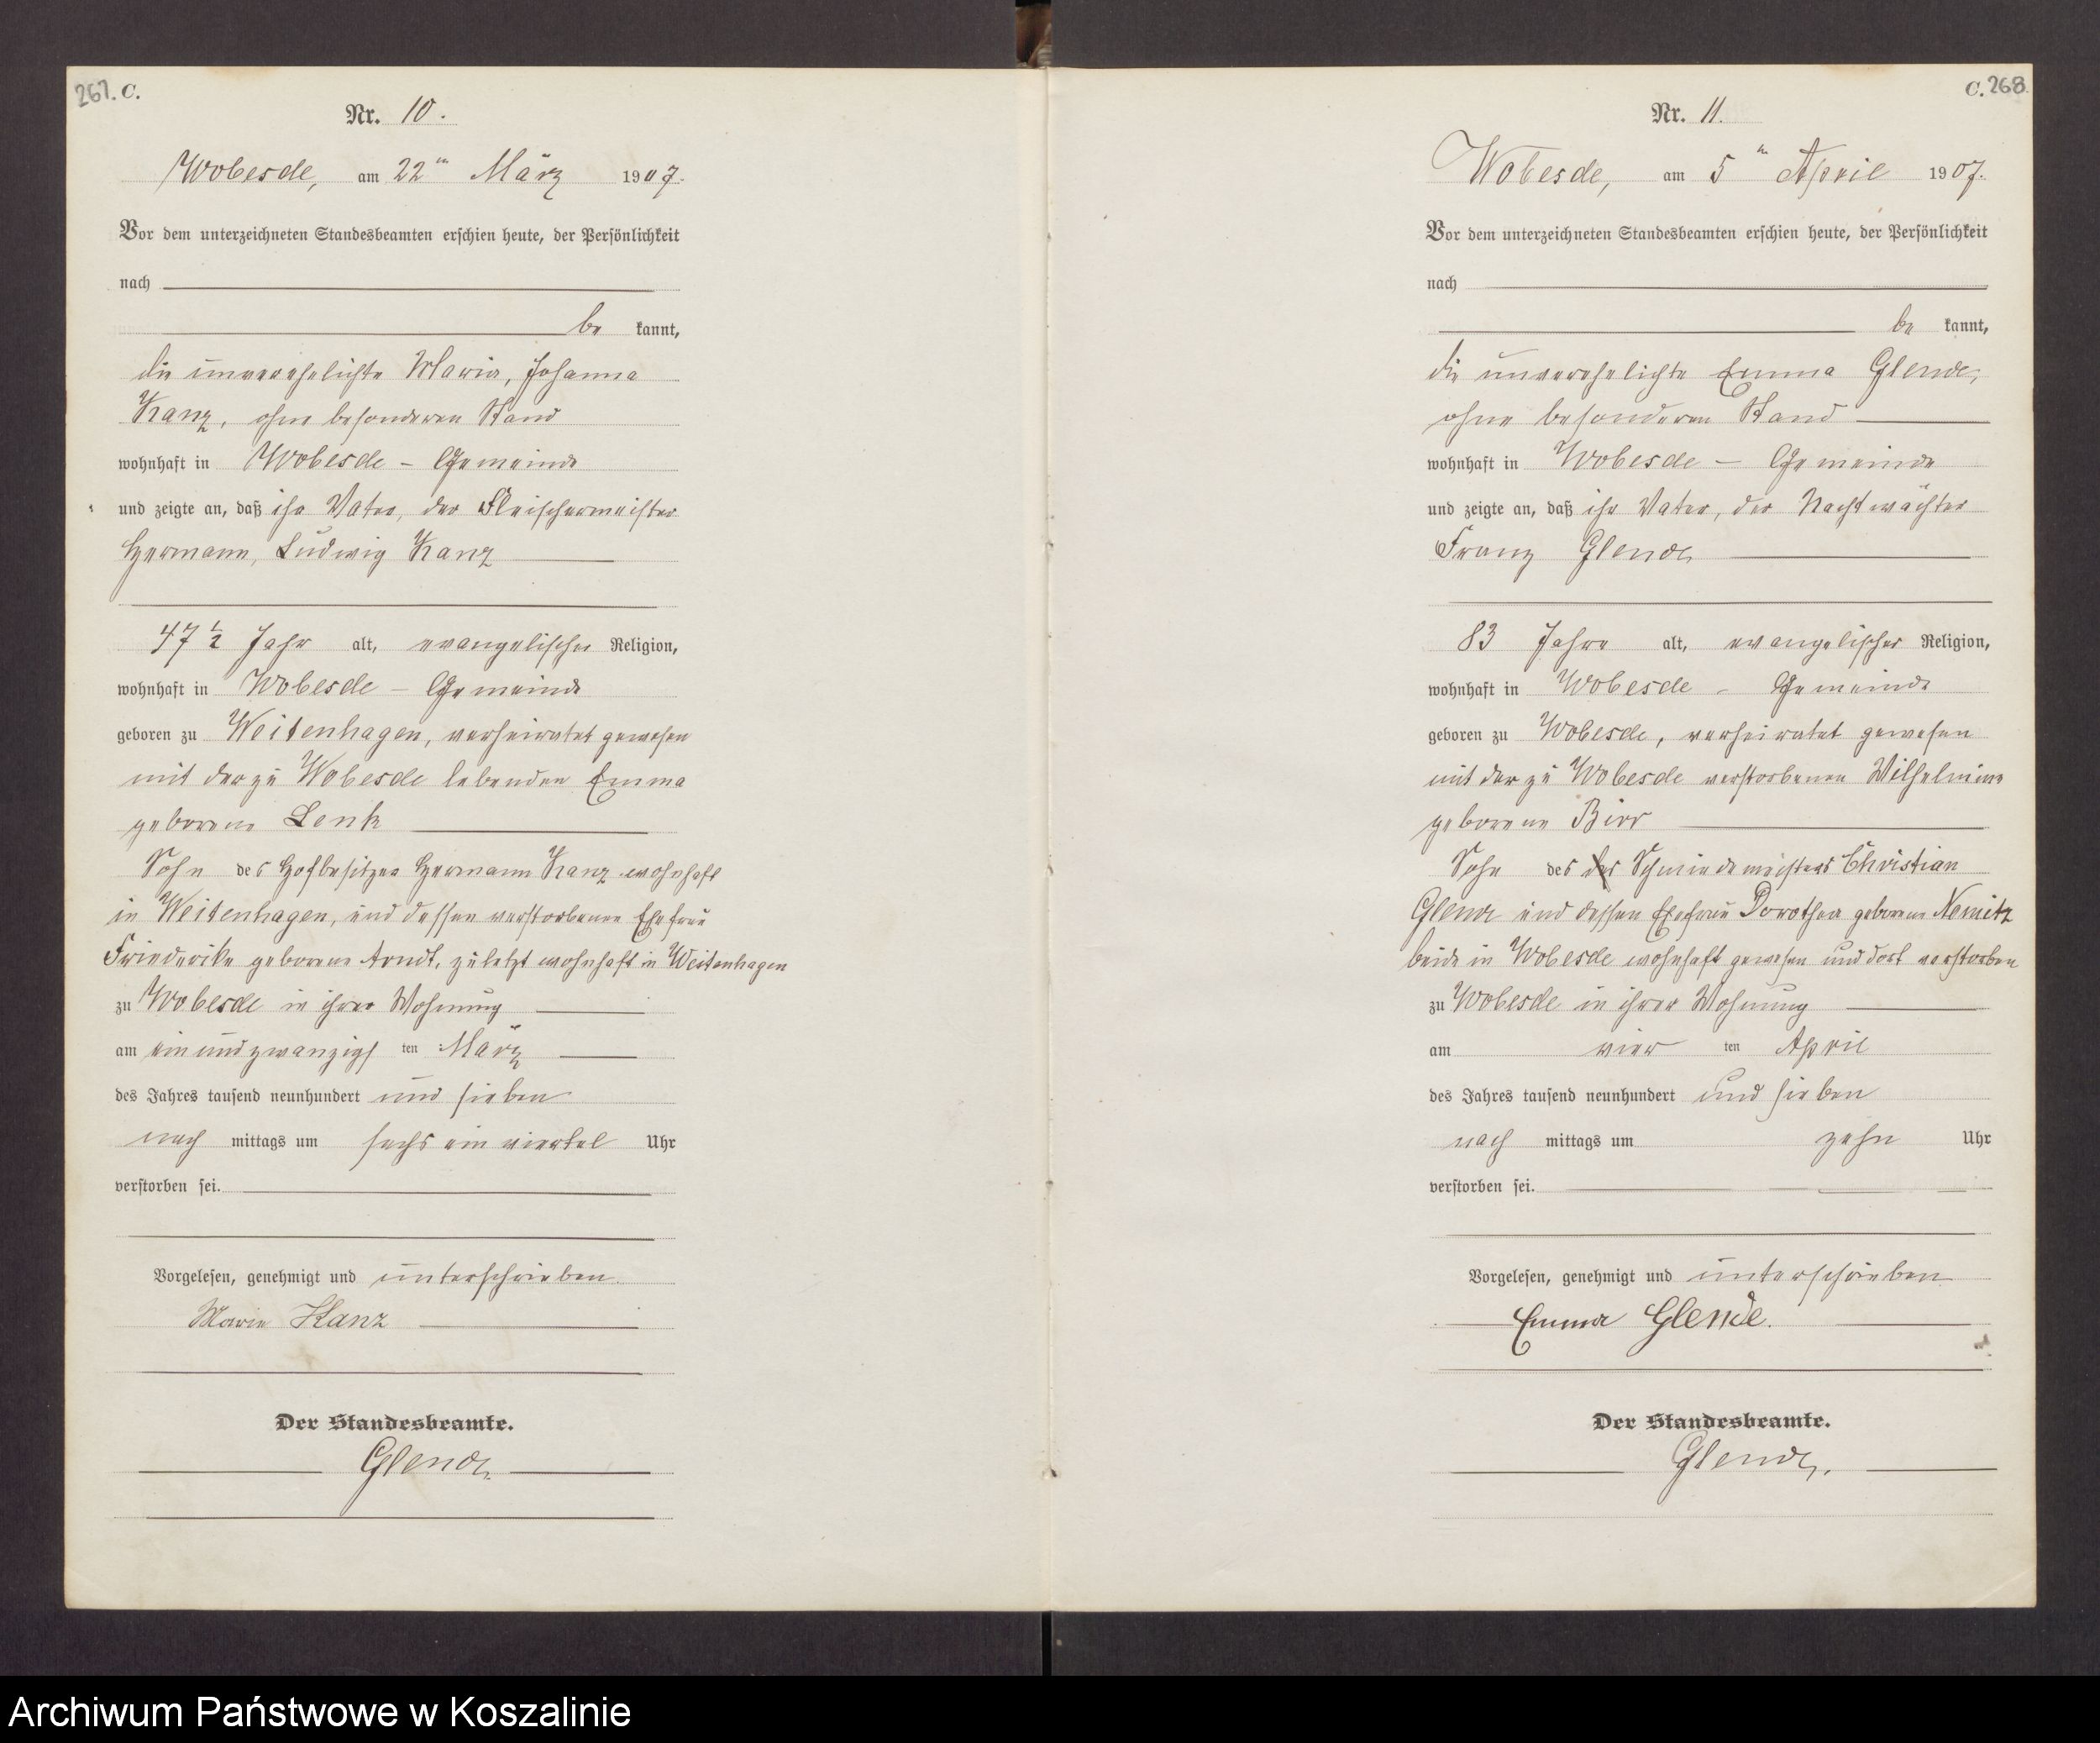 267. C.
Nr. 10.
Wobesde, am 22ten März 1907.
Vor dem unterzeichneten Standesbeamten erschien heute, der Persönlichkeit
nach
be kannt,
die unverehelichte Maria, Johanna
Kanz, ohne besonderen Stand
wohnhaft in Wobesde - Gemeinde
und zeigte an, daß ihr Vater, der Fleischermeister
Hermann, Ludwig Kanz
47 1/2 Jahr alt, evangelischer Religion,
wohnhaft in Wobesde - Gemeinde
geboren zu Weitenhagen, verheiratet gewesen
mit der zu Wobesde lebenden Emma
geborene Lenk
Sohn des Hofbesitzer Hermann Kanz wohnhaft
in Weitenhagen, und dessen verstorbenen Ehefrau
Friederike geborene Arndt, zuletzt wohnhaft in Weitenhagen
zu Wobesde in ihrer Wohnung
am einundzwanzigs ten März
des Jahres tausend neunhundert und sieben
nach mittags um sechs ein viertel Uhr
verstorben sei.
Vorgelesen, genehmigt und unterschrieben.
Marie Kanz
Der Standesbeamte.
Glende
C. 268
Nr. 11.
Wobesde, am 5ten April 1907.
Vor dem unterzeichneten Standesbeamten erschien heute, der Persönlichkeit
nach
be kannt,
die unverehelichte Emma Glende,
ohne besonderen Stand
wohnhaft in Wobesde - Gemeinde
und zeigte an, daß ihr Vater, der Nachtwächter
Franz Glende
83 Jahre alt, evangelischer Religion,
wohnhaft in Wobesde - Gemeinde
geboren zu Wobesde, verheiratet gewesen
mit der zu Wobesde verstorbenen Wilhelmine
geborene Birr
Sohn des des Schmiedemeisters Christian
Glende und dessen Ehefrau Dorothea geborene Nemitz
beide in Wobesde wohnhaft gewesen und dort verstorben
zu Wobesde in ihrer Wohnung
am vier ten April
des Jahres tausend neunhundert und sieben
nach mittags um zehn Uhr
verstorben sei.
Vorgelesen, genehmigt und unterschrieben
Emma Glende.
Der Standesbeamte.
Glende.
Archiwum Państwowe w Koszalinie